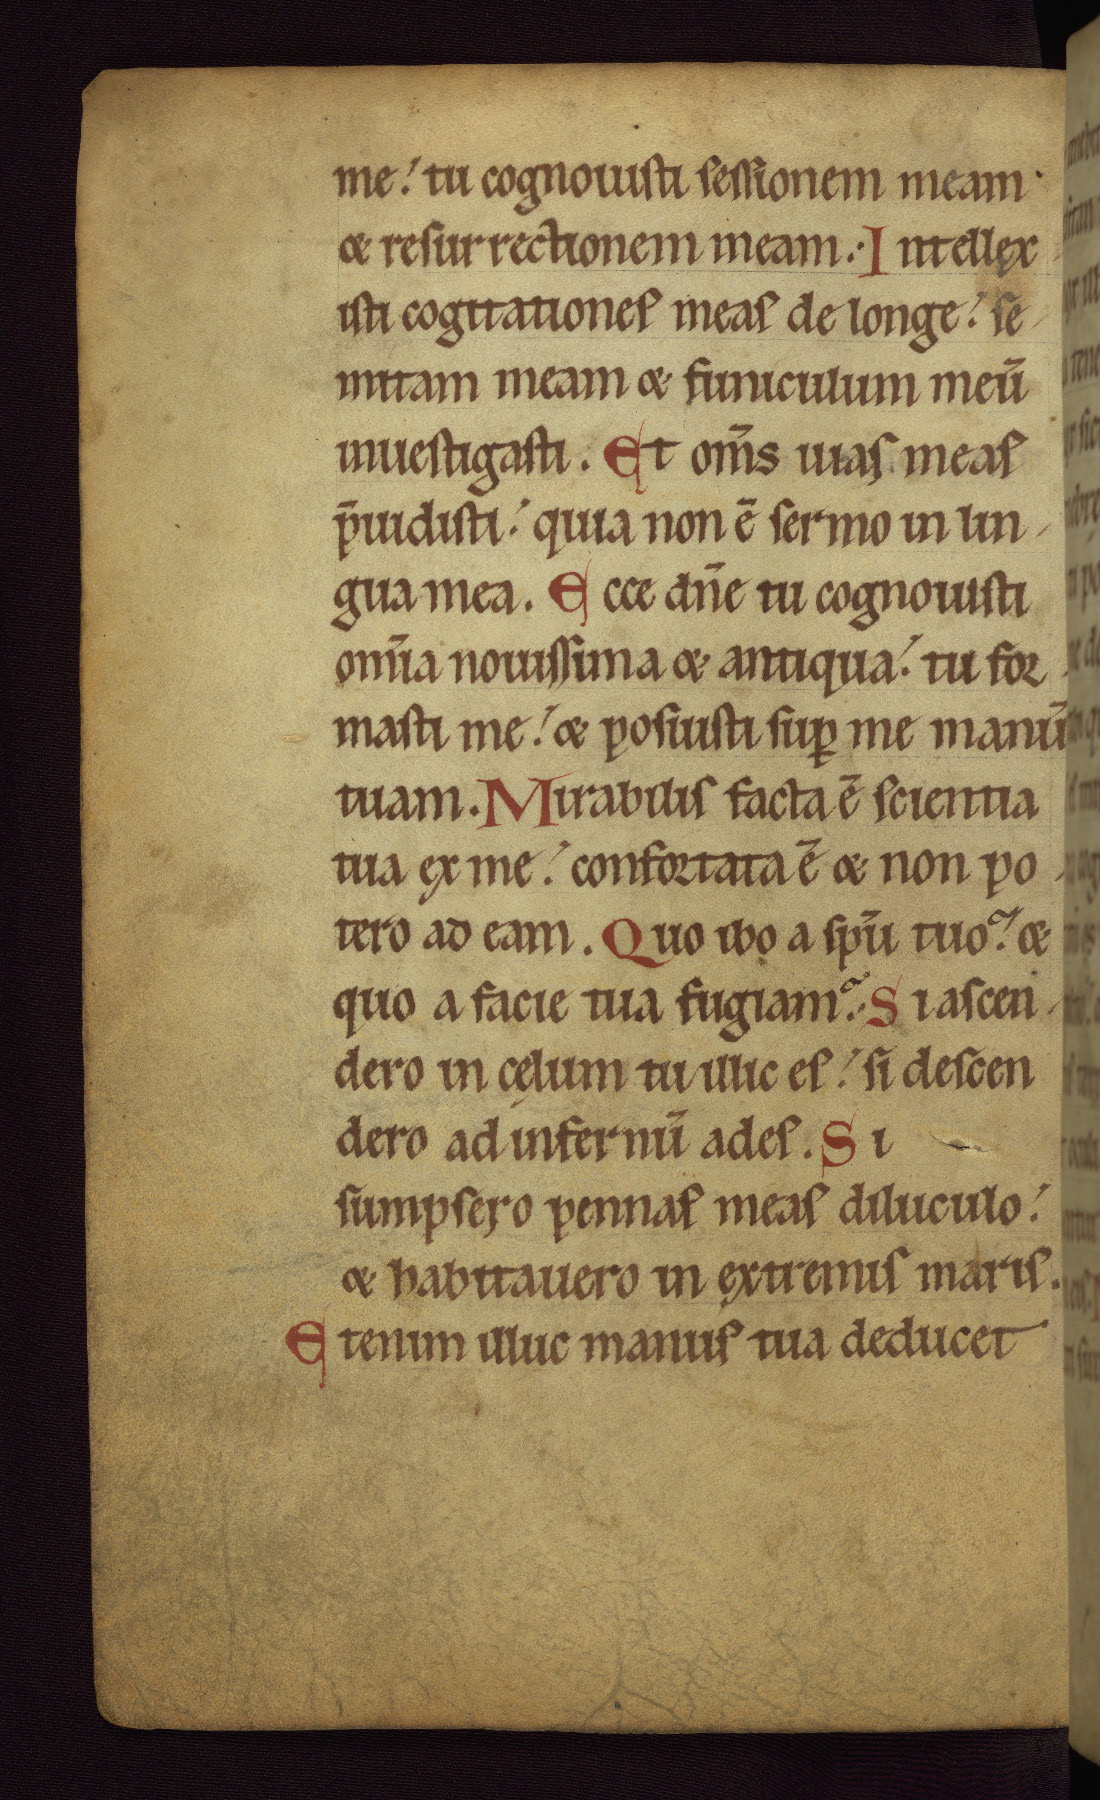 me: tu cognouisti sessionem meam
& resurrectionem meam. Intellex
isti cogitationes meas de longe: se
mitam meam & funiculum meū
inuestigasti. Et om̄s uias meas
p̄uidisti: quia non ē sermo in lin
gua mea. Ecce dn̄e tu cognouisti
om̄ia nouissima & antiqua: tu for
masti me: & posuisti suꝑ me manū
tuam. Mirabilis facta ē scientia
tua ex me: confortata ē & non po
tero ad eam. Quo ibo a spū tuo? &
quo a facie tua fugiam? Si ascen
dero in cęlum tu illic es: si descen
dero ad infernū ades. Si
sumpsero pennas meas diluculo:
& habitauero in extremis maris.
Etenim illuc manus tua deducet